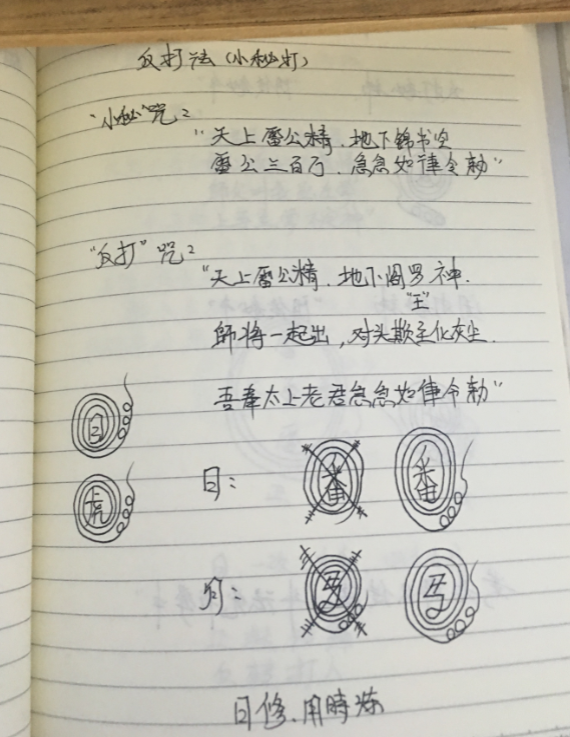 反打法（小秘打）
"小秘"咒：
"天上雷公精．地下錦书
雷公三百万．急急如律令勅"
"反打"咒：
"天上雷公精．地下阎罗神．
"王"
師将一起出，对头欺至化灰尘．
吾奉太上老君急急如律令勅"
日
日：
番
番
虎
月：
日修．用時炼